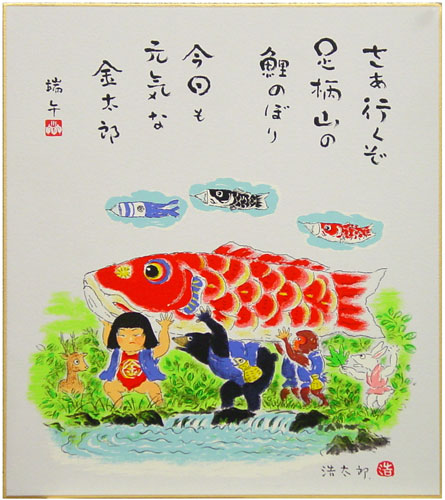 さあ行くぞ
足柄山の
鯉のぼり
今日も
元気な
金太郎
端午
金
浩太郎
浩